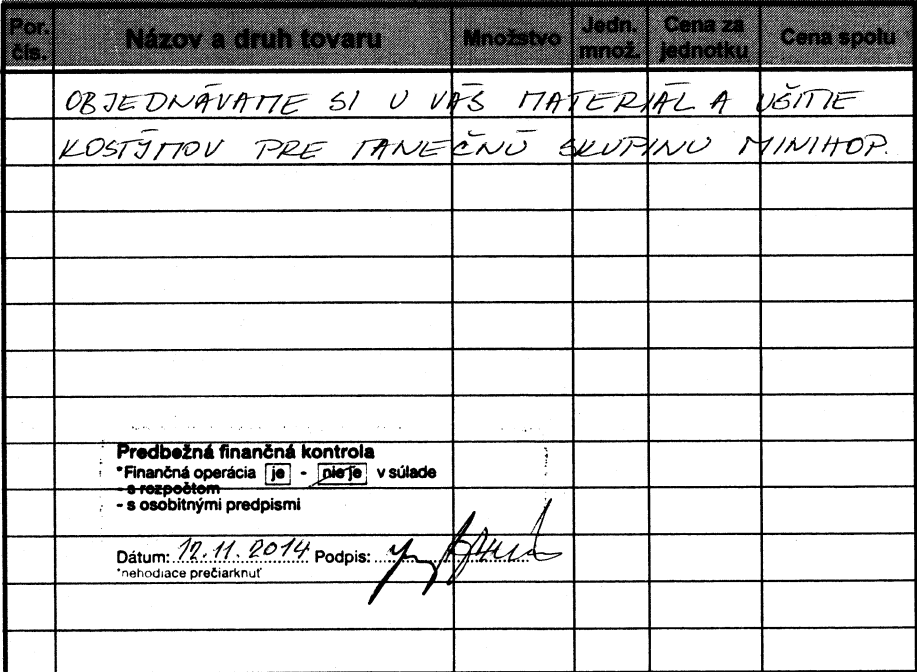 Por. čís. Názov a druh tovaru Množstvo Jedn. množ. Cena za jednotku Cena spolu
OBJEDNÁVAME SI U VÁS MATERIÁL A UŠITIE
KOSTÝMOV PRE TANEČNÚ SKUPINU MINIHOP.
Predbežná finančná kontrola
*Finančná operácia je - nie je v súlade
- s rozpočtom
- s osobitnými predpismi
Dátum: 12.11.2014 Podpis:
*nehodiace prečiarknuť